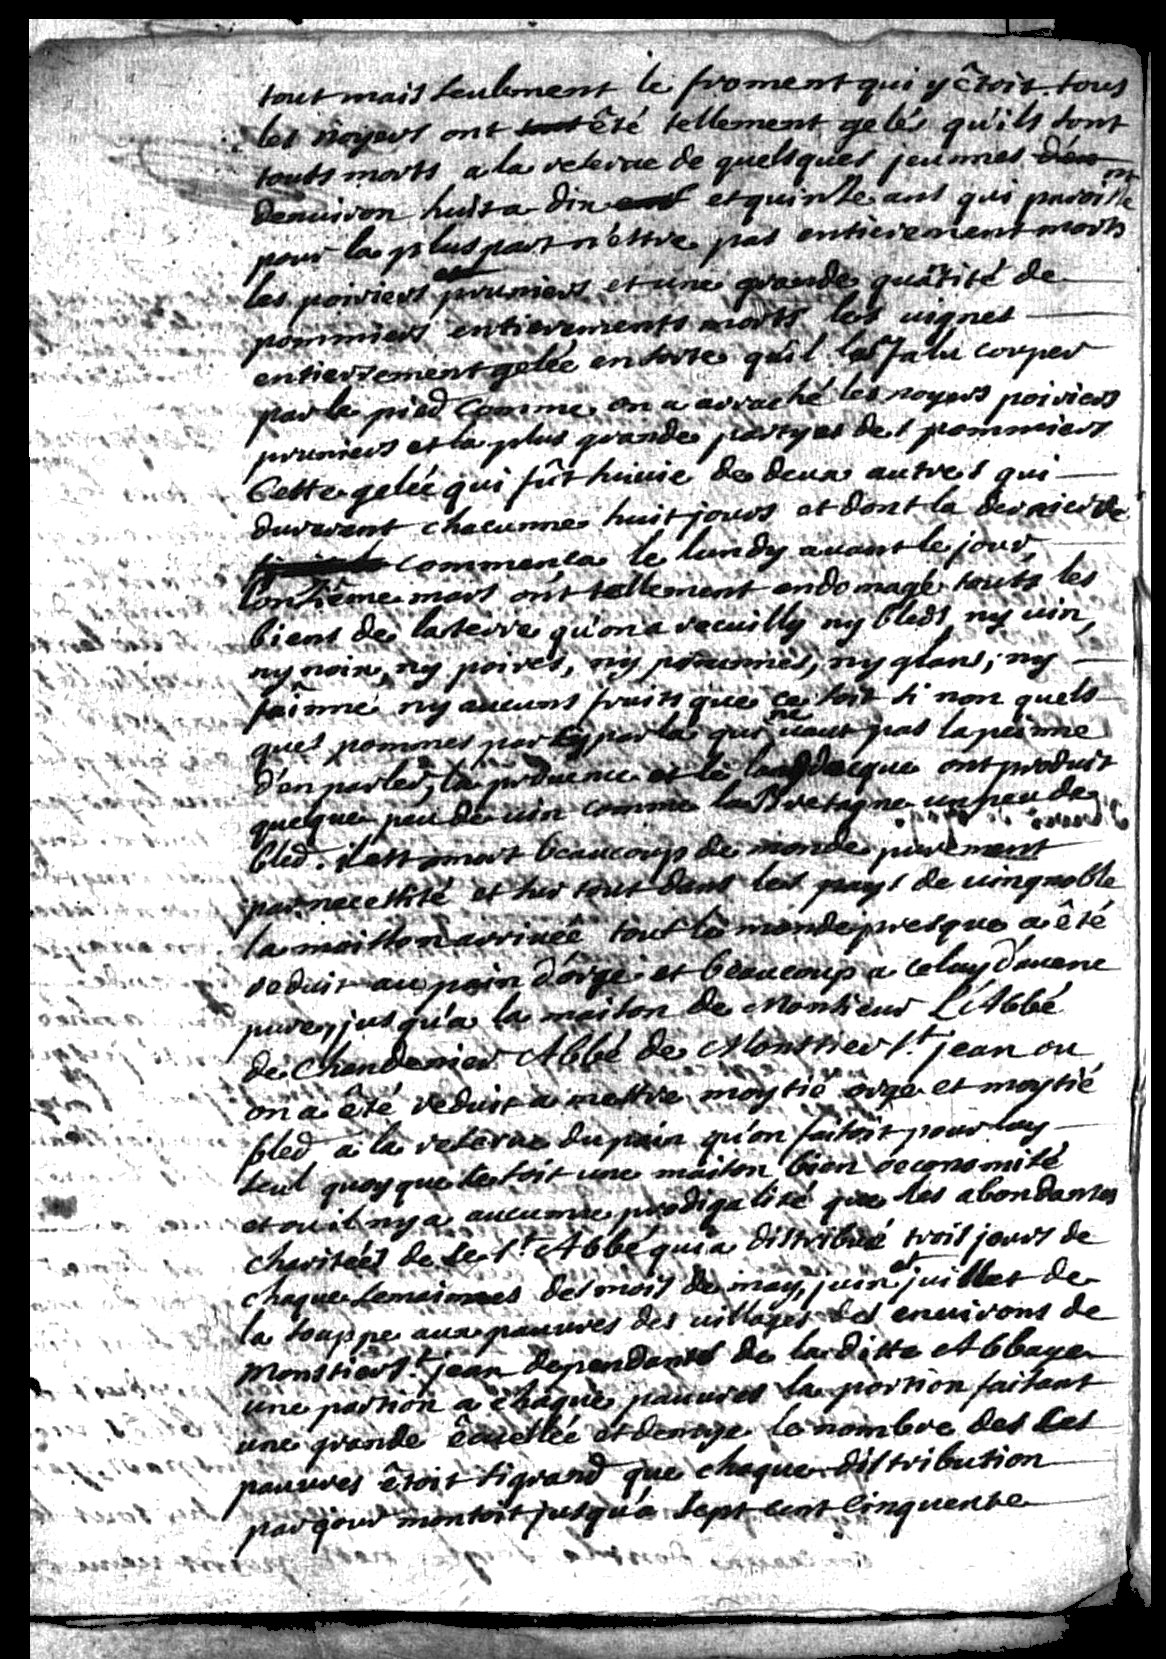 tout mais seulement le froment qui y êtoit tous
les noyers ont êté tellement gelés qu'ils sont
touts morts a la reserue de quelsques jeunnes
denuiron huit a dix et quinze ans qui paroisse nt
pour la pluspart n'estre pas entierement morts
les poiriers pruniers et une grande quãtité de
pommiers entierements morts les uignes
entierrement gelée en sorte qu'il les falu couper
par le pied comme on a arraché les noyers poiriers
pruniers et la plus grande partyes des pommiers
Cette gelée qui fût suiuie de deux autres qui
durerent chacunne huit jours et dont la dernierre
commenca le lundy auant le jour
l'onzième mars ont tellement endomagé touts les
biens de la terre qu'on a recuilly ny bleds, ny uin,
ny noix, ny poires, ny pommes, ny glans, ny
faînne ny aucuns fruits que ce soit si non quels
ques pommes par cy par la qui ne uaut pas la peinne
d'en parler, la prouence et le languedocque ont produit
quelque peu de uin comme la Bretagne un peu de
bled. il est mort beaucoup de monde purement
par necessité et sur tout dans les pays de uingnoble
la moisson arriuêe tout le monde presque a êté
reduit au pain d'orge et beaucoup a celuy d'auene
pure, jusqu'a la maison de Monsieur L'Abbé
de Chandenier Abbé de Monstier S.t jean ou
on a êté reduit a mettre moytié orge et moytié
bled a la reserue du pain qu'on faisoit pour luy
seul quoy que se soit une maison bien oeconomisé
et ou il ny a aucunne prodigalité que les abondantes
charitées de Se S.t Abbé qui a distribué trois jours de
chaque semainnes des mois de may, juin et juillet de
la souppe aux pauures des uillages des enuirons de
Monstier S.t jean dependants de laditte Abbaye
une portion a chaque pauures la portion faisant
une grande êcuellée et demye le nombre des Ses
pauures êtoit si grand que chaque distribution
par jour montoit jusqu'a sept cent cinquente